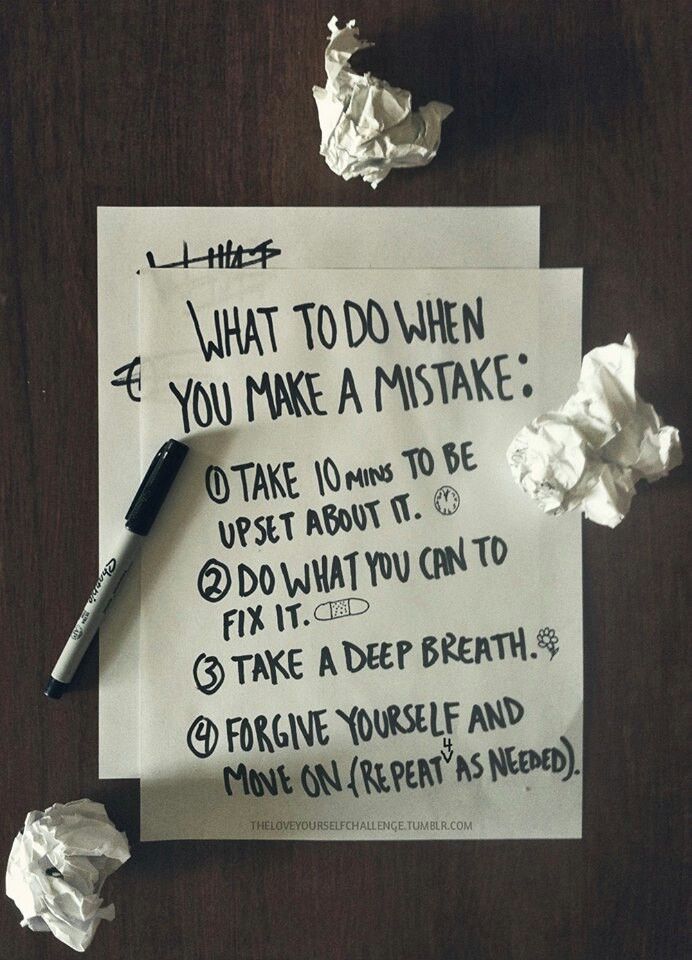 WHAT
WHAT TO DO WHEN
YOU MAKE A MISTAKE:
① TAKE 10 MINS TO BE
UPSET ABOUT IT.
② DO WHAT YOU CAN TO
FIX IT.
③ TAKE A DEEP BREATH.
④ FORGIVE YOURSELF AND
MOVE ON (REPEAT 4 AS NEEDED).
Sharpie
THELOVEYOURSELFCHALLENGE.TUMBLR.COM